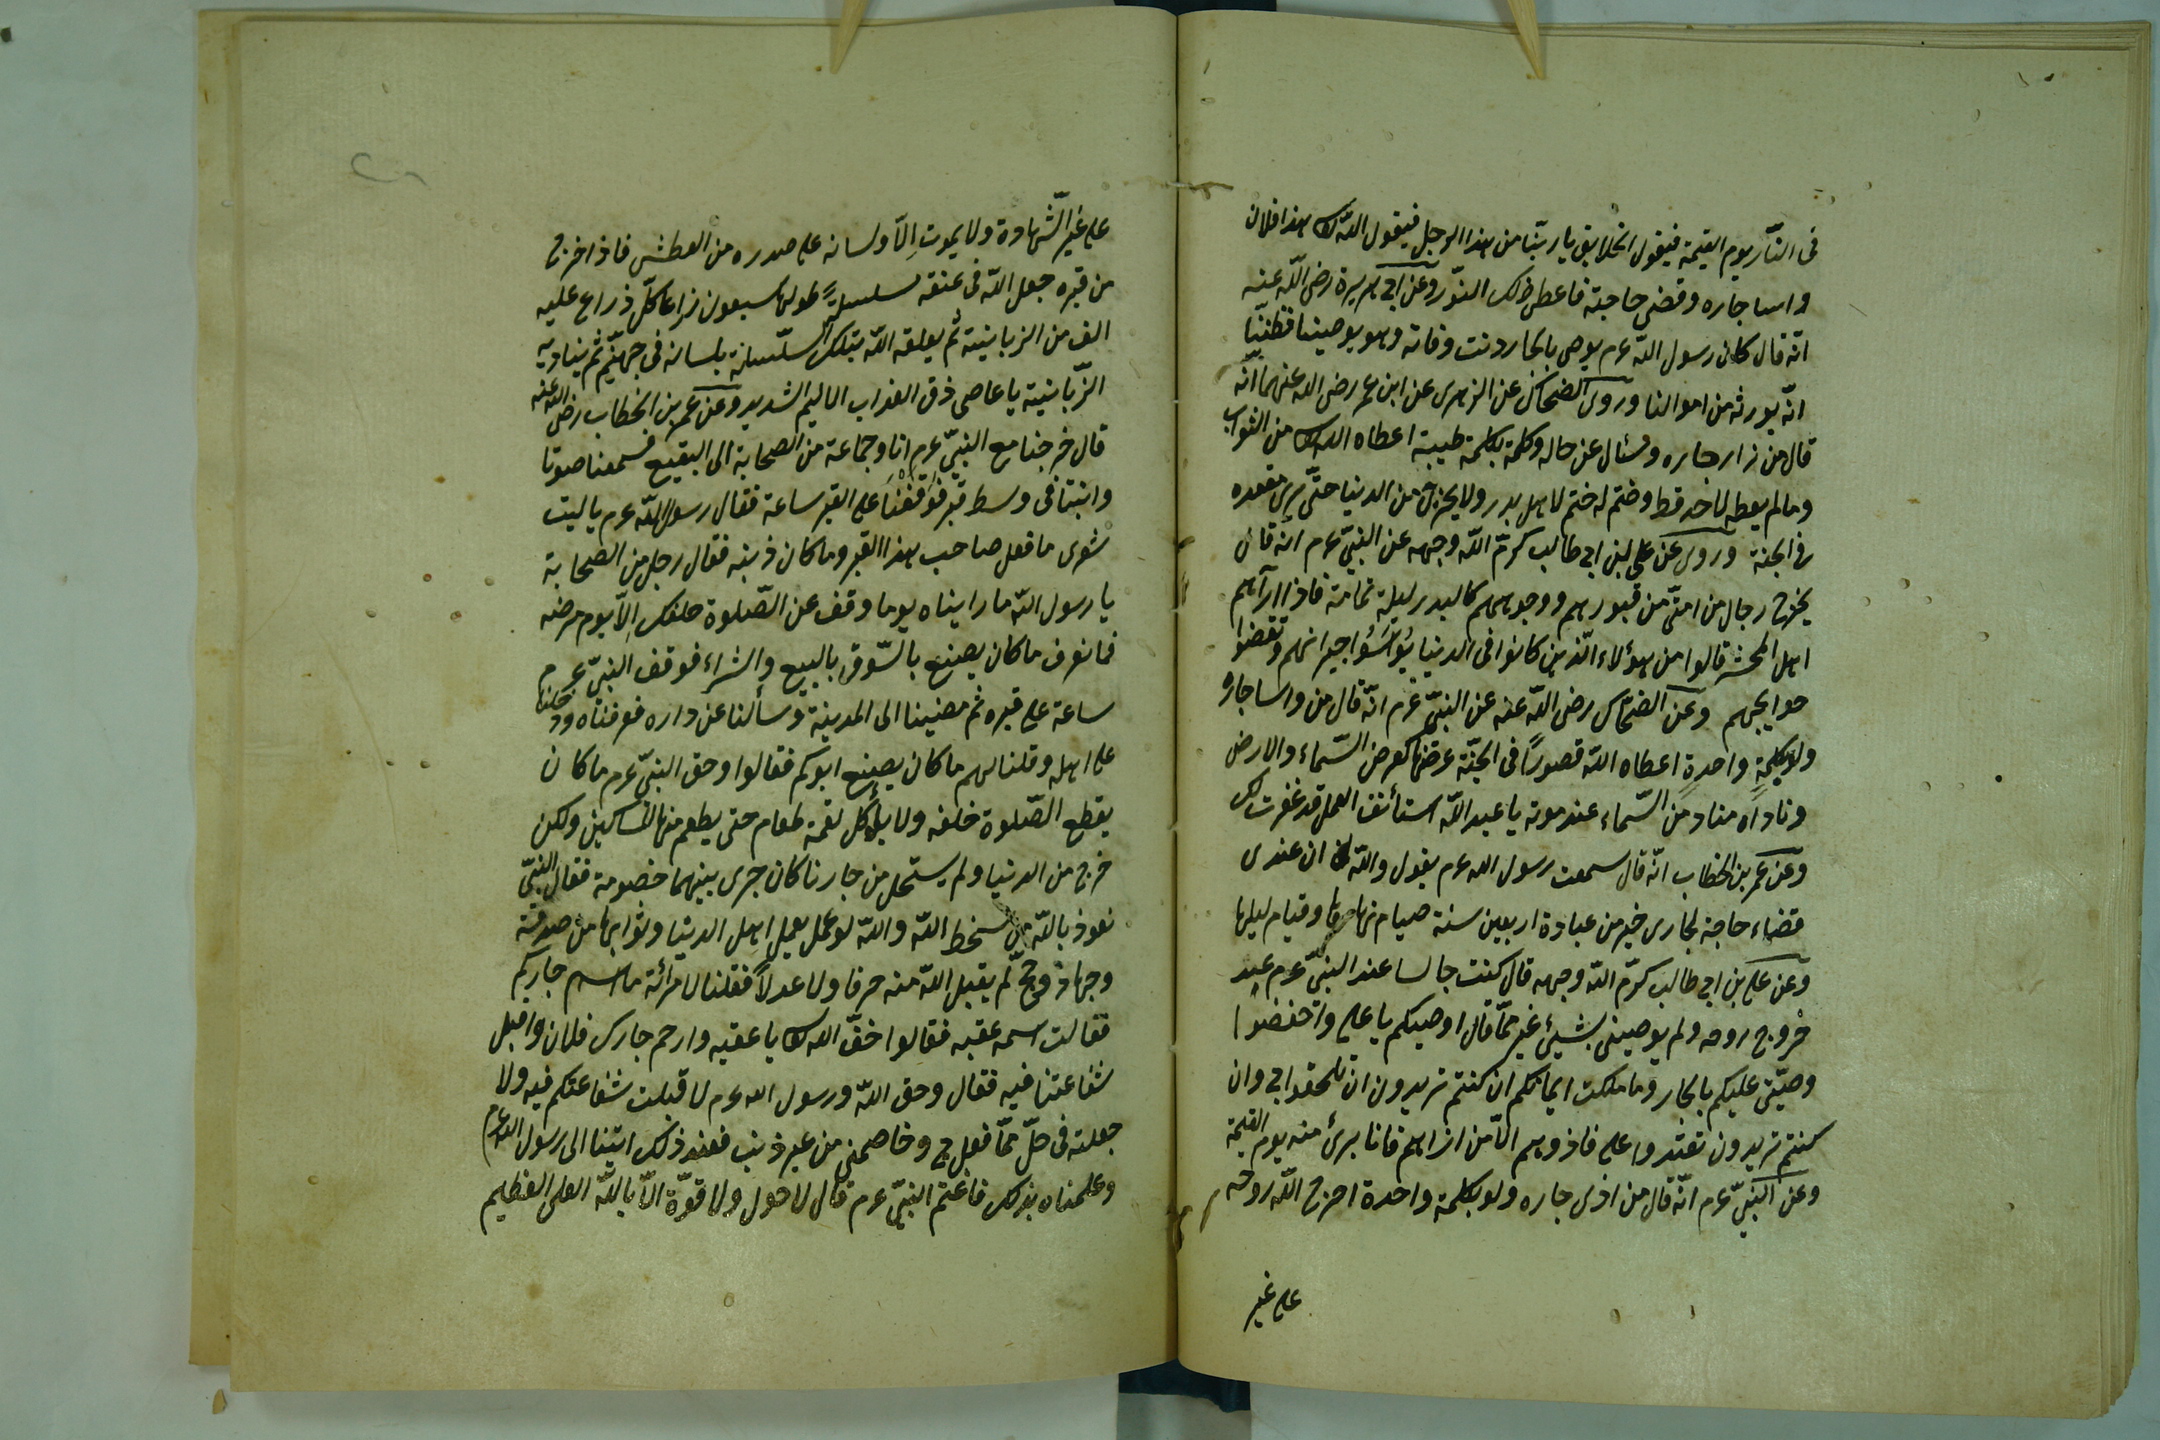 فى النّار يوم القيمة فيقول الخلايق يا ربّنا من هذا الرجل فيقول اللّه هذا فلان
واسا جاره وقضى حاجته فاعطى ذلك النّور وعن ابى هريرة رضى اللّه عنه
انّه قال كان رسول اللّه عم يوصى بالجار وقت وفاته وهو يوصينا فظننّا
انّه يورثه من اموالنا وروى الضحاك عن الزهرى عن ابن عمر رضى الله عنهما انّه
قال من زار جاره وسئال عن حاله وكلمه بكلمة طيبة اعطاه الله من الثواب
ومالم يعطه لاحد قط وختم له ختم لاهل بدر ولا يخرج من الدنيا حتّى يرى مقعده
فى الجنة وروى عن على ابن ابى طالب كرمّ اللّه وجهه عن النبىّ عم انّه قال
يخرج رجال من امتّى من قبورهم ووجوههم كالبدر ليلة تمامه فاذا رآهم
اهل المحشر قالوا من هؤلاء الّذين كانوا فى الدنيا يؤنسؤا جيرانهم وتقضوا
حوايجهم وعن الضحّاك رضى اللّه عنه عن النبىّ عم انّه قال من واسا جاره
ولو بكلمةٍ واحدةٍ اعطاه اللّه قصوراً فى الجنّة عرضها كعرض السّماء والارض
وناداه مناد من السّماء عند موته يا عبد اللّه استأنف العمل قد غفرت لك
وعن عمر بن الخطاب انّه قال سمعت رسول الله عم يقول واللّه ان عندى
قضاء حاجة لجارى خير من عبادة اربعين سنة صيام نهارها وقيام ليلها
وعن على بن ابى طالب كرّم اللّه وجهه قال كنت جالسا عند النبىّ عم عند
خروج روحه ولم يوصينى بشيئ غير ممّا قال اوصيكم يا على واحفضوا
وصيّتى عليكم بالجار وما ملكت ايمانكم ان كنتم تريدون ان تلحقوا بى وان
كنتم تريدون تفتدوا على فاذوهم الّا من اذاهم فانا برئ منه يوم القيمة
وعن النبىّ عم انّه قال من اذى جاره ولو بكلمة واحدة اخرج اللّه روحه
على غير
على غير الشّهادة ولا يموت اِلاّ ولسانه على صدره من العطش فاذا خرج
من قبره جعل اللّه فى عنقه سلسلةً طولها سبعون ذراعا كلّ ذراع عليه
الف من الزبانية ثم يعلقه اللّه بتلك السّلسلة بلسانه فى جهنّم ثم يناديه
الزّبانية يا عاصى ذق العذاب الاليم الشديد وعن عمر بن الخطاب رضى اللّه عنه
قال خرجنا مع النبىّ عم انا وجماعة من الصحابة الى البقيع فسمعنا صوتا
وانينا فى وسط قبر فوَقفْنَا على القبر ساعة فقال رسول اللّه عم يا ليت
شوى ما فعل صاحب هذا القبر وما كان ذنبه فقال رجل من الصحابة
يا رسول اللّه ما رايناه يوما وقف عن الصّلوة خلفك اِلاّ يوم مرضه
فما نعرف ما كان يصنع بالسّوق بالبيع والشراء فوقف النبىّ عم
ساعة على قبره ثم مضينا الى المدينة وسألنا عن داره فعرفناه ودخلنا
على اهله وقلنا لهم ما كان يصنع ابوكم فقالوا وحق النبىّ عم ما كان
يقطع الصّلوة خلفه ولا يأكل لقمة طعام حتى يطعم منها المساكين ولكن
خرج من الدنيا ولم يستحل من جار نا كان جرى بينهما خصومة فقال النبىّ
نعوذ باللّه من سخط اللّه واللّه لو عمل بعمل اهل الدنيا وثوابها من صدقته
وجهاد وحجّ لم يقبل اللّه منه صرفا ولا عدلاً فقلنا لامرأته ما اسم جاركم
فقالت اسمه عقبه فقالوا خفّ الله يا عقبه وارحم جارك فلان واقبل
شفاعتنا فيه فقال وحق اللّه ورسول الله عم لا قبلت شفاعتكم فيه ولا
جعلته فى حلّ ممّا فعل بى وخاصمنى من غير ذنب فعند ذلك اتينا الى رسول اللّه عم
وعلمناه بذلك فاغتم النبىّ عم قال لا حول ولا قوّة الاّ باللّه العلى العظيم